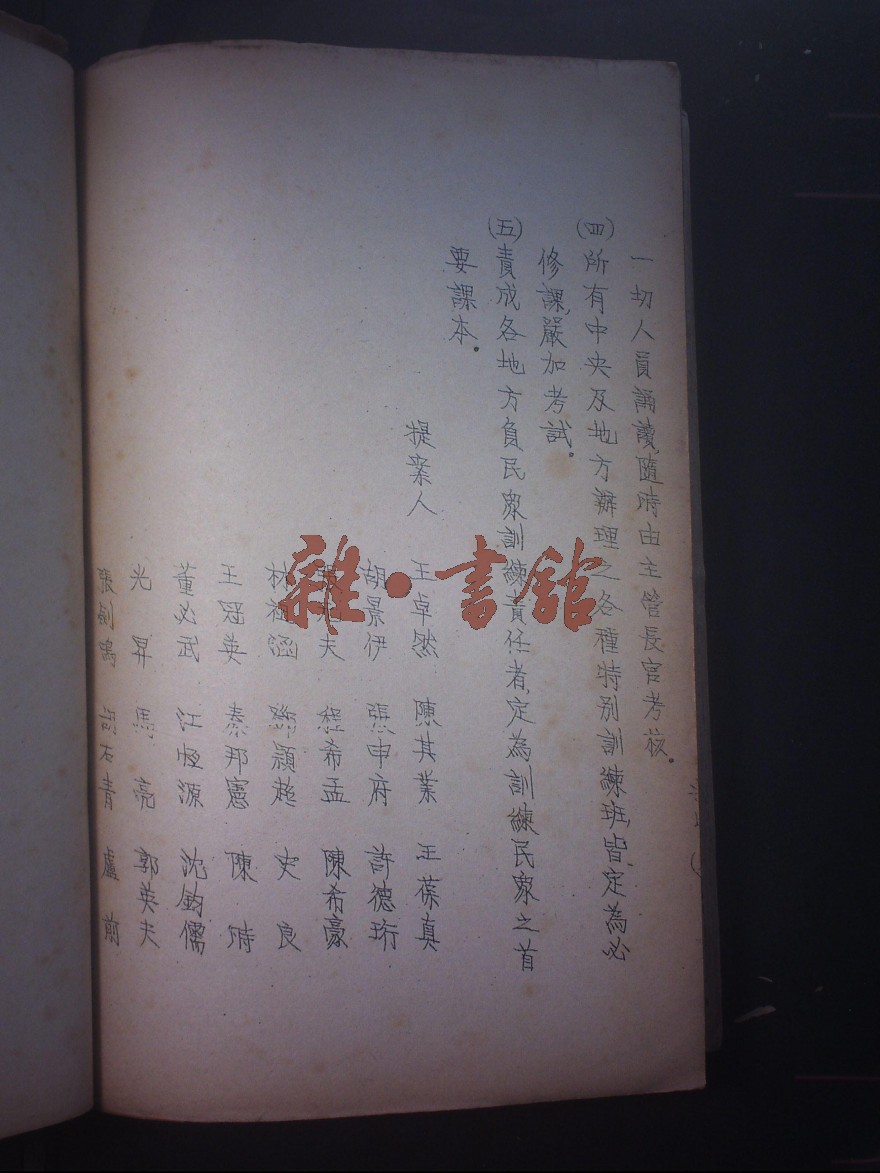 一切人員誦讀，隨時由主管長官考核。
(四)所有中央及地方辦理之各種特別訓練班，皆定為必
修課，嚴加考試。
(五)責成各地方負民衆訓練責任者，定為訓練民衆之首
要課本。
提案人　王卓然　陳其業　王葆真
胡景伊　張申府　許德珩
夫　程希孟　陳希豪
林祖涵　鄧穎超　史良
王冠英　秦邦憲　陳時
董必武　江恆源　沈鈞儒
光昇　馬亮　郭英夫
張劍鳴　胡石青　盧前
雜·書館